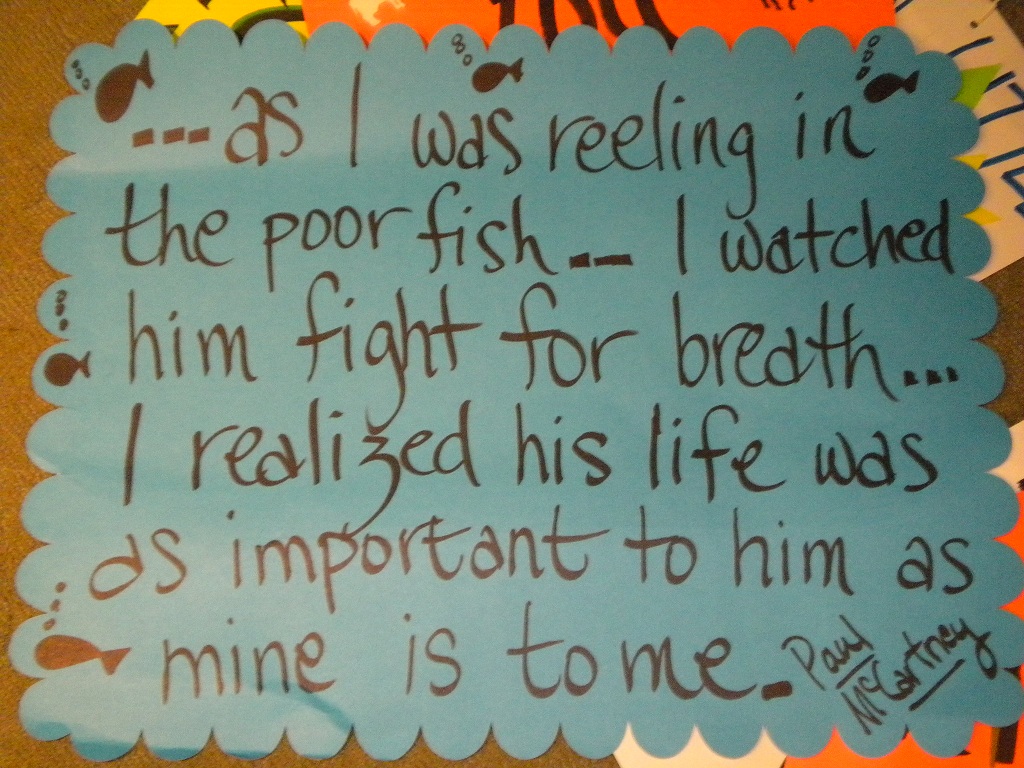 --- as I was reeling in
the poor fish... I watched
him fight for breath...
I realized his life was
as important to him as
mine is to me.
Paul
McCartney